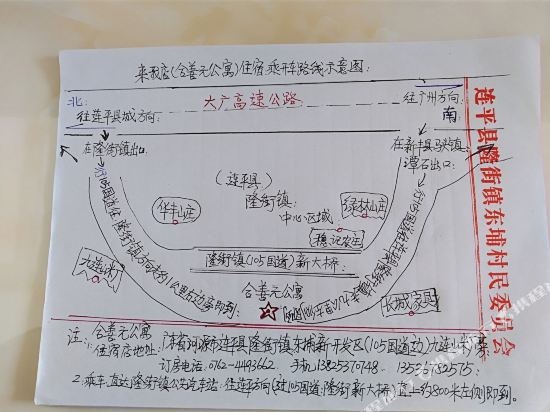 来我店(合善元公寓)住宿乘开车路线示意图:
北: 大广高速公路 往广州方向:
往连平县城方向: 南:
在隆街镇出口: 在新丰县马头镇:
潭石出口:
(连平县)
隆街镇:
中心区域:
华丰山庄
绿林山庄
穗记农庄
九连山村
隆街镇(105国道)新大桥:
合善元公寓
长城家具
连平县隆街镇东埔村民委员会
注: 合善元公寓
1. 住宿店地址: 广东省河源市连平县隆街镇东埔新开发区(105国道边)九连山村
订房电话: 0762-4493662. 手机 13825370748. 13536782575:
2. 乘车直达隆街镇公共汽车站: 往连平方向(过105国道隆街新大桥)直上约800米左侧即到.